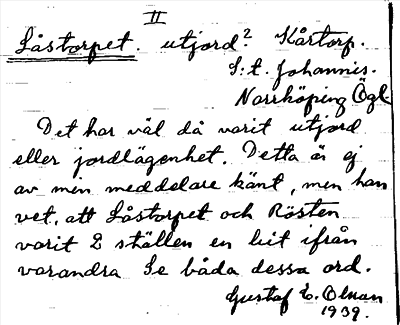 II
Låstorpet. utjord? Kårtorp.
S:t. Johannis.
Norrköping Ögl.
Det har väl då varit utjord
eller jordlägenhet. Detta är ej
av men meddelare känt, men han
vet, att Låstorpet och Rösten
varit 2 ställen en bit ifrån
varandra Se båda dessa ord.
Gustaf E. Olsson
1939.